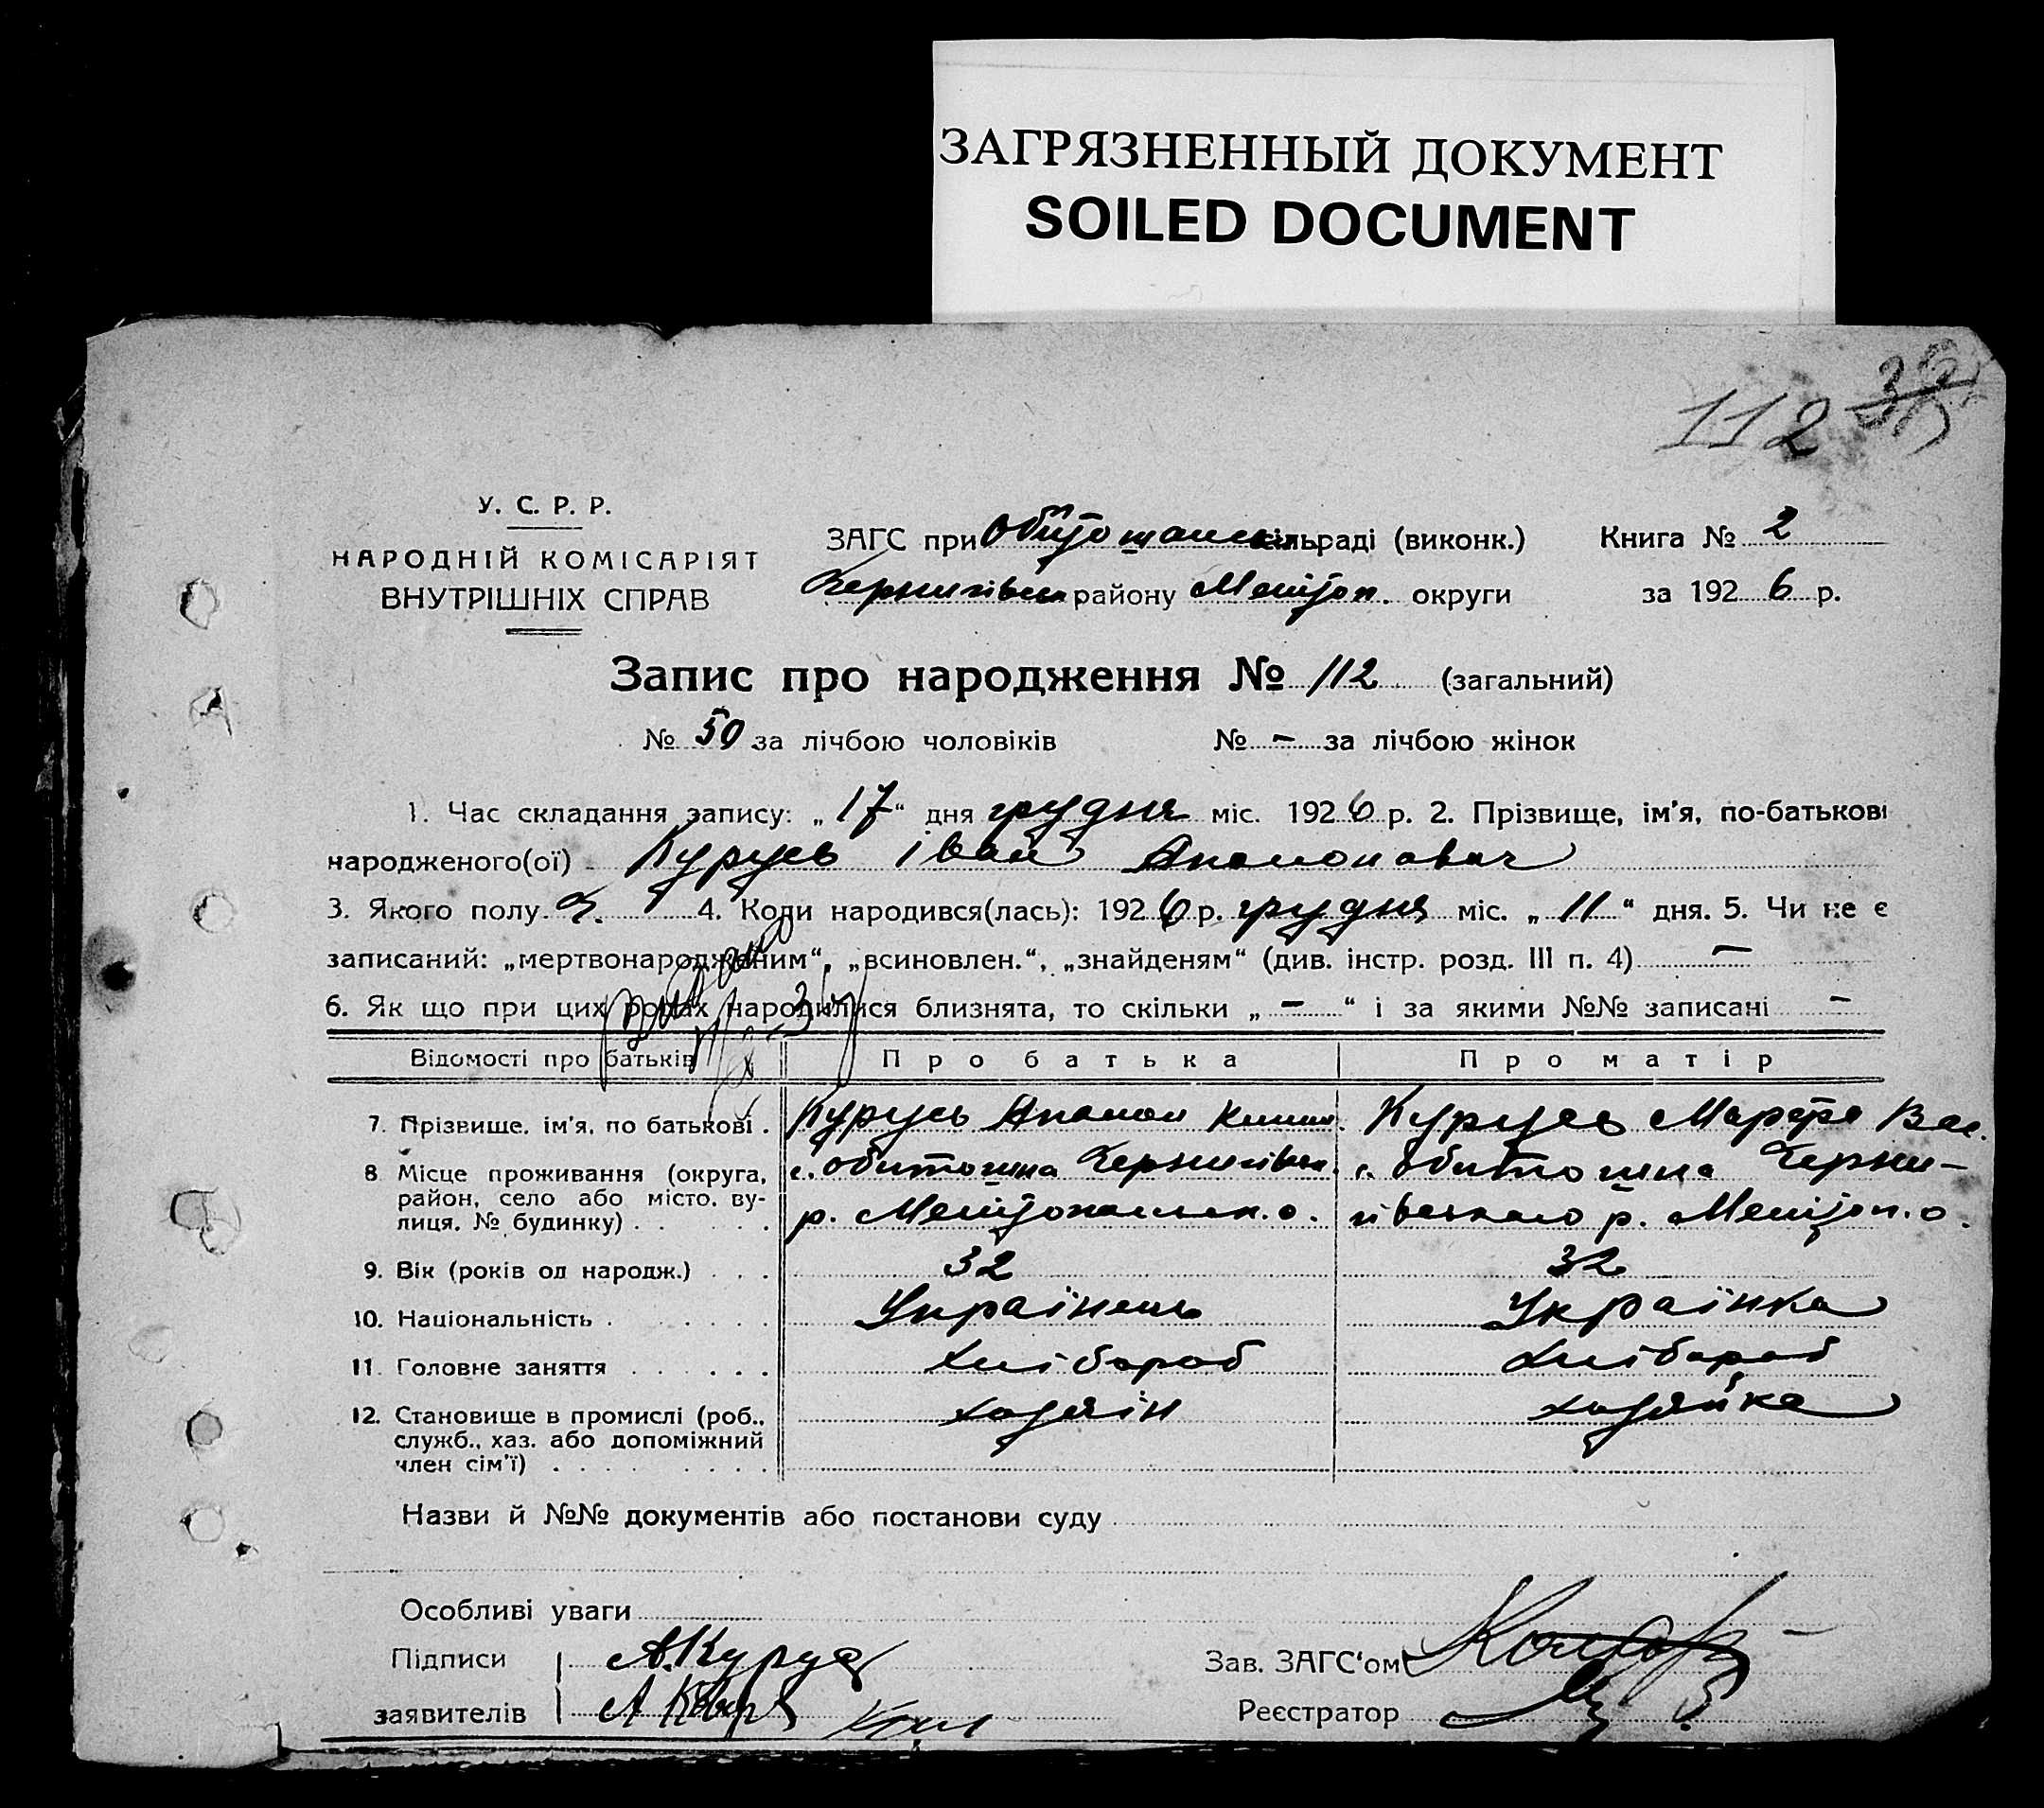 ЗАГРЯЗНЕННЫЙ ДОКУМЕНТ
SOILED DOCUMENT
112
У. С. Р. Р.
НАРОДНІЙ КОМІСАРІЯТ
ВНУТРІШНІХ СПРАВ
ЗАГС при сільраді (виконк.) Книга № 2
району округи за 1926 р.
Запис про народження № 112 (загальний)
№ 50 за лічбою чоловіків № – за лічбою жінок
1. Час складання запису: „17“ дня грудня міс. 1926 р. 2. Прізвище, ім'я, по-батькові
народженого(ої) Курусь Іван
3. Якого полу ч. 4. Коли народився(лась): 1926 р. грудня міс. „11“ дня. 5. Чи не є
записаний: „мертвонародженим“, „всиновлен.“, „знайденям“ (див. інстр. розд. III п. 4) –
6. Як що при цих родах народилися близнята, то скільки „–“ і за якими №№ записані –
Відомості про батьків Про батька Про матір
7. Прізвище, ім'я, по батькові . Курусь Курусь Марфа Вас.
8 Місце проживання (округа, с. Обиточна с. Обиточна Черни-
район, село або місто, ву-
лиця, № будинку) . . . . р. гівського р.
9. Вік (років од народж.) . . . 32 32
10. Національність . . . . . . Українець Українка
11. Головне заняття . . . . . Хлібороб Хлібороб
12. Становище в промислі (роб., хазяїн хазяйка
служб., хаз. або допоміжний
член сім'ї) . . . . . . . .
Назви й №№ документів або постанови суду
Особливі уваги
Підписи А. Курус Зав. ЗАГС'ом
заявителів Реєстратор